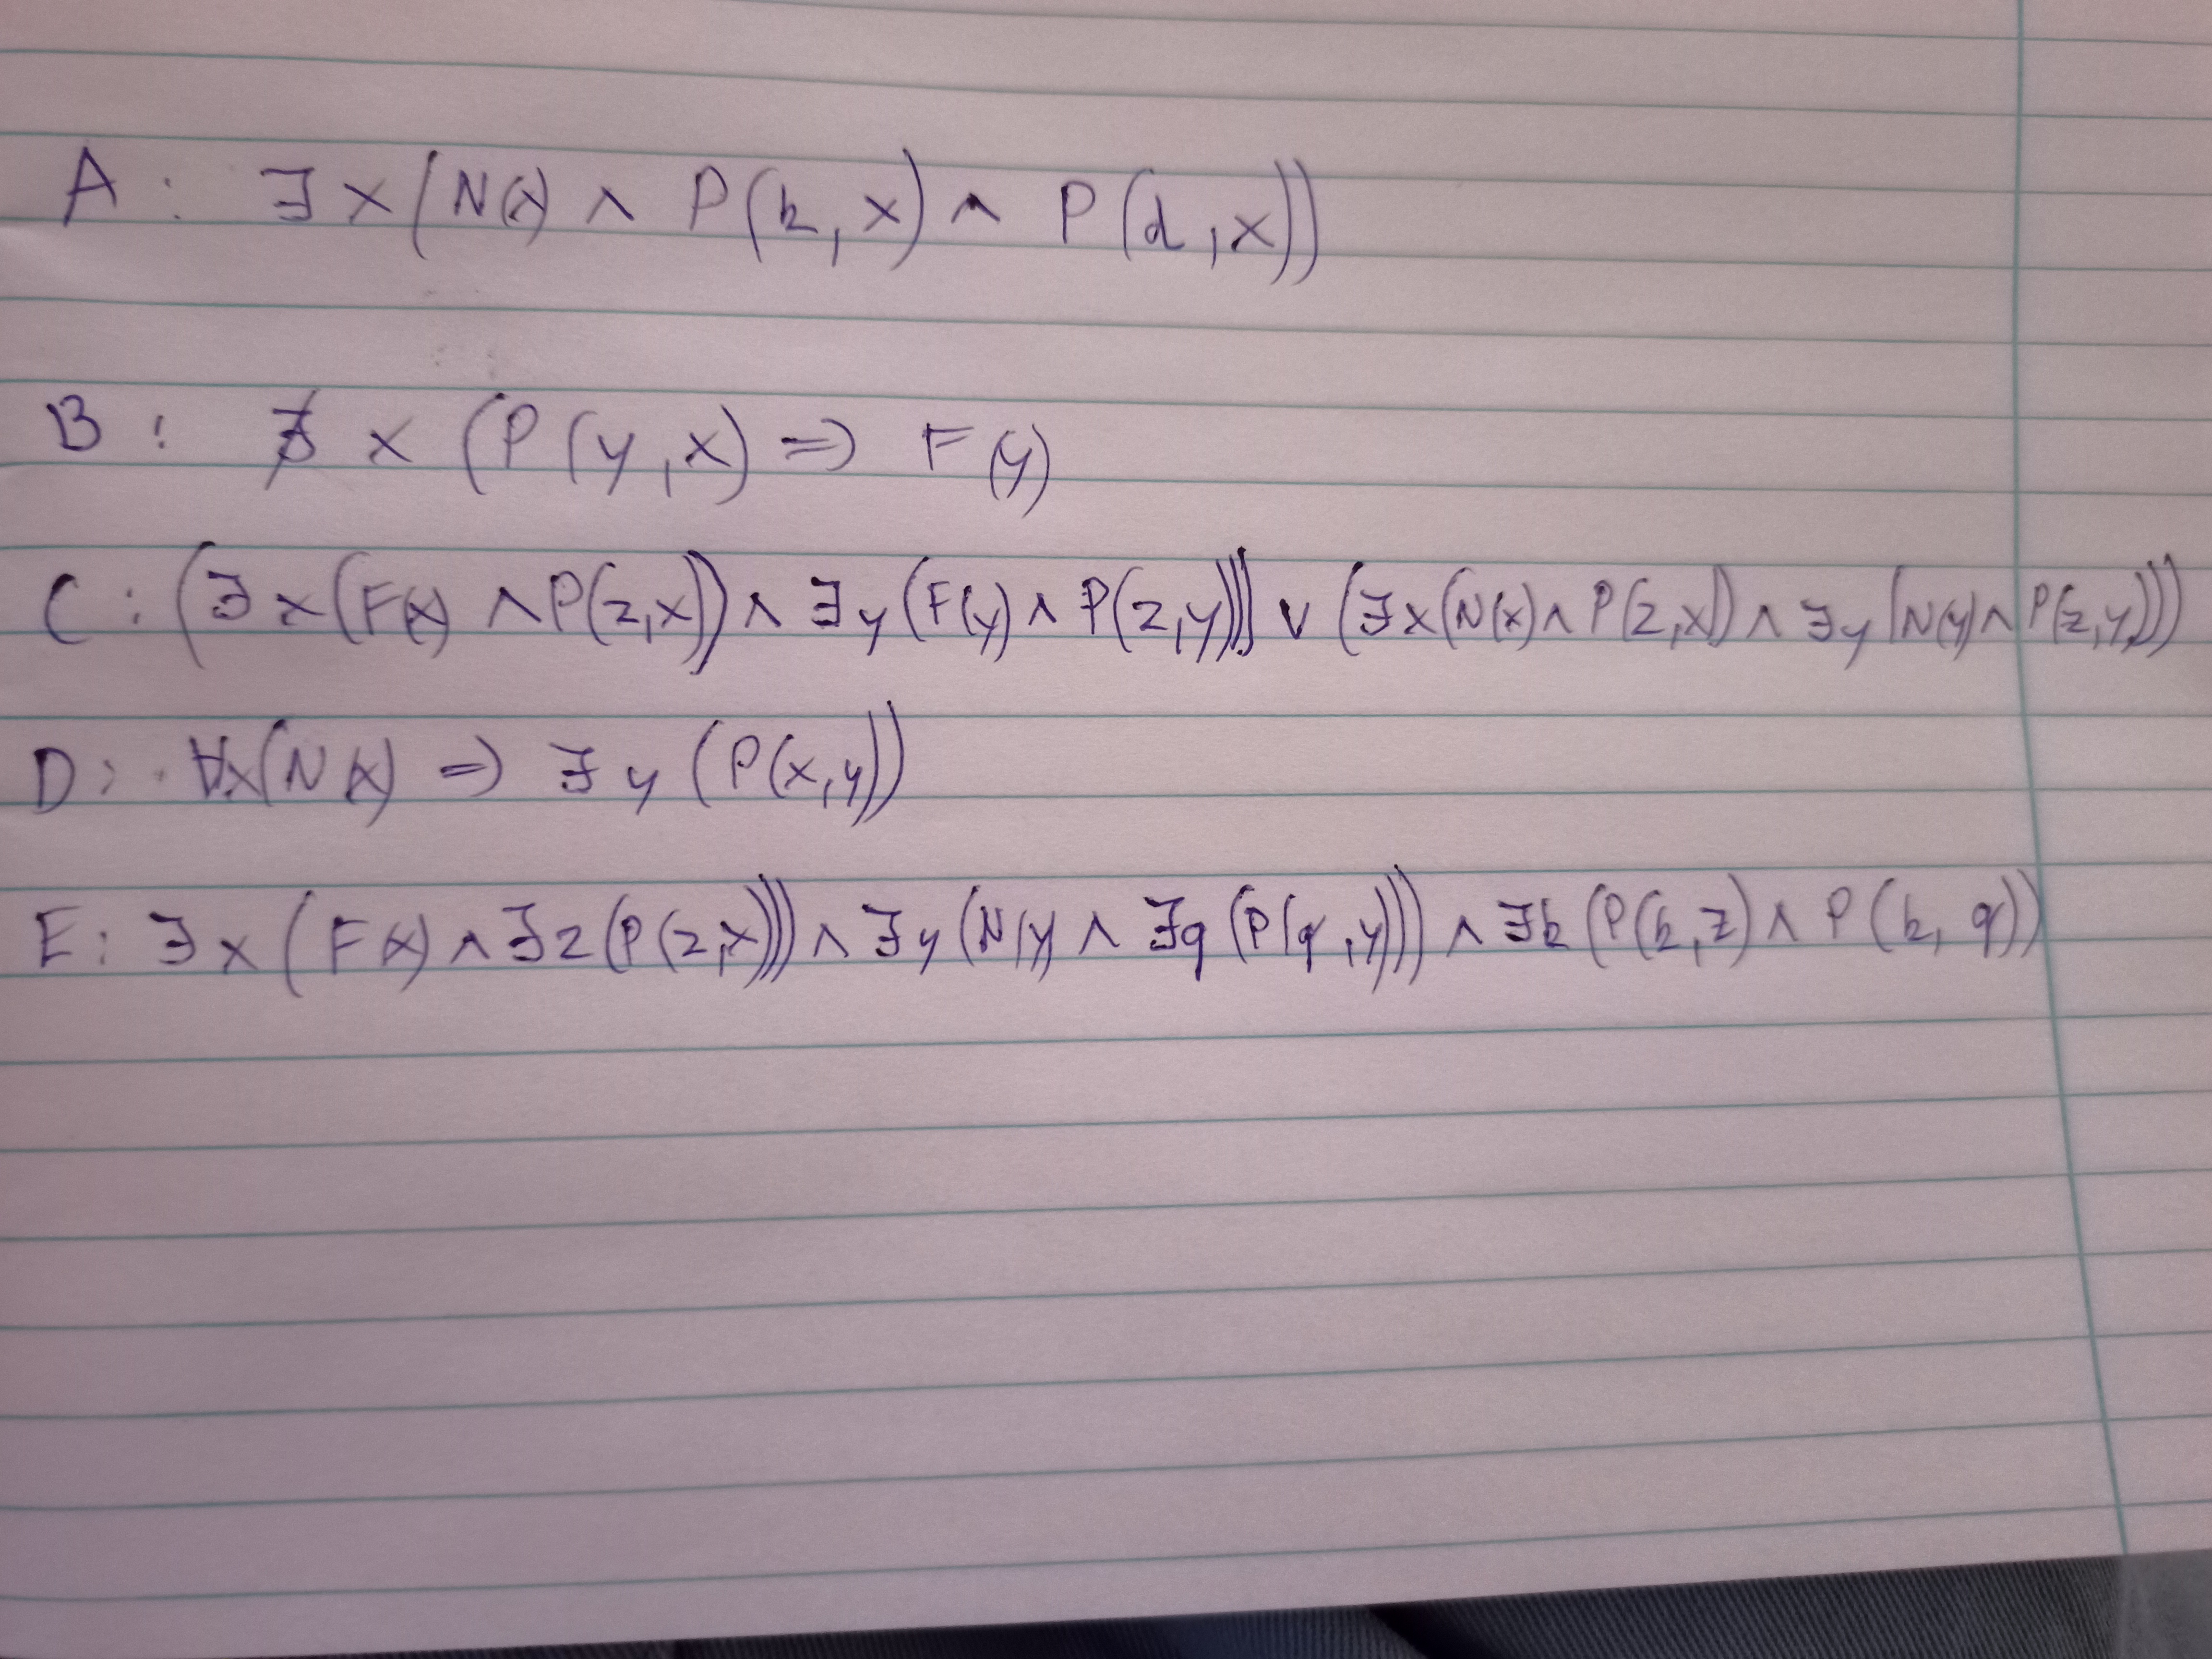 A: ∃x(N(x) ∧ P(k,x) ∧ P(d,x))
B: ∄x (P(y,x) => F(y)
C: (∃x(F(x) ∧ P(z,x)) ∧ ∃y(F(y) ∧ P(z,y))) ∨ (∃x(N(x) ∧ P(z,x)) ∧ ∃y(N(y) ∧ P(z,y)))
D: ∀x(N(x) => ∃y (P(x,y))
E: ∃x(F(x) ∧ ∃z(P(z,x))) ∧ ∃y(N(y) ∧ ∃q(P(q,y))) ∧ ∃k(P(k,z) ∧ P(k,q))